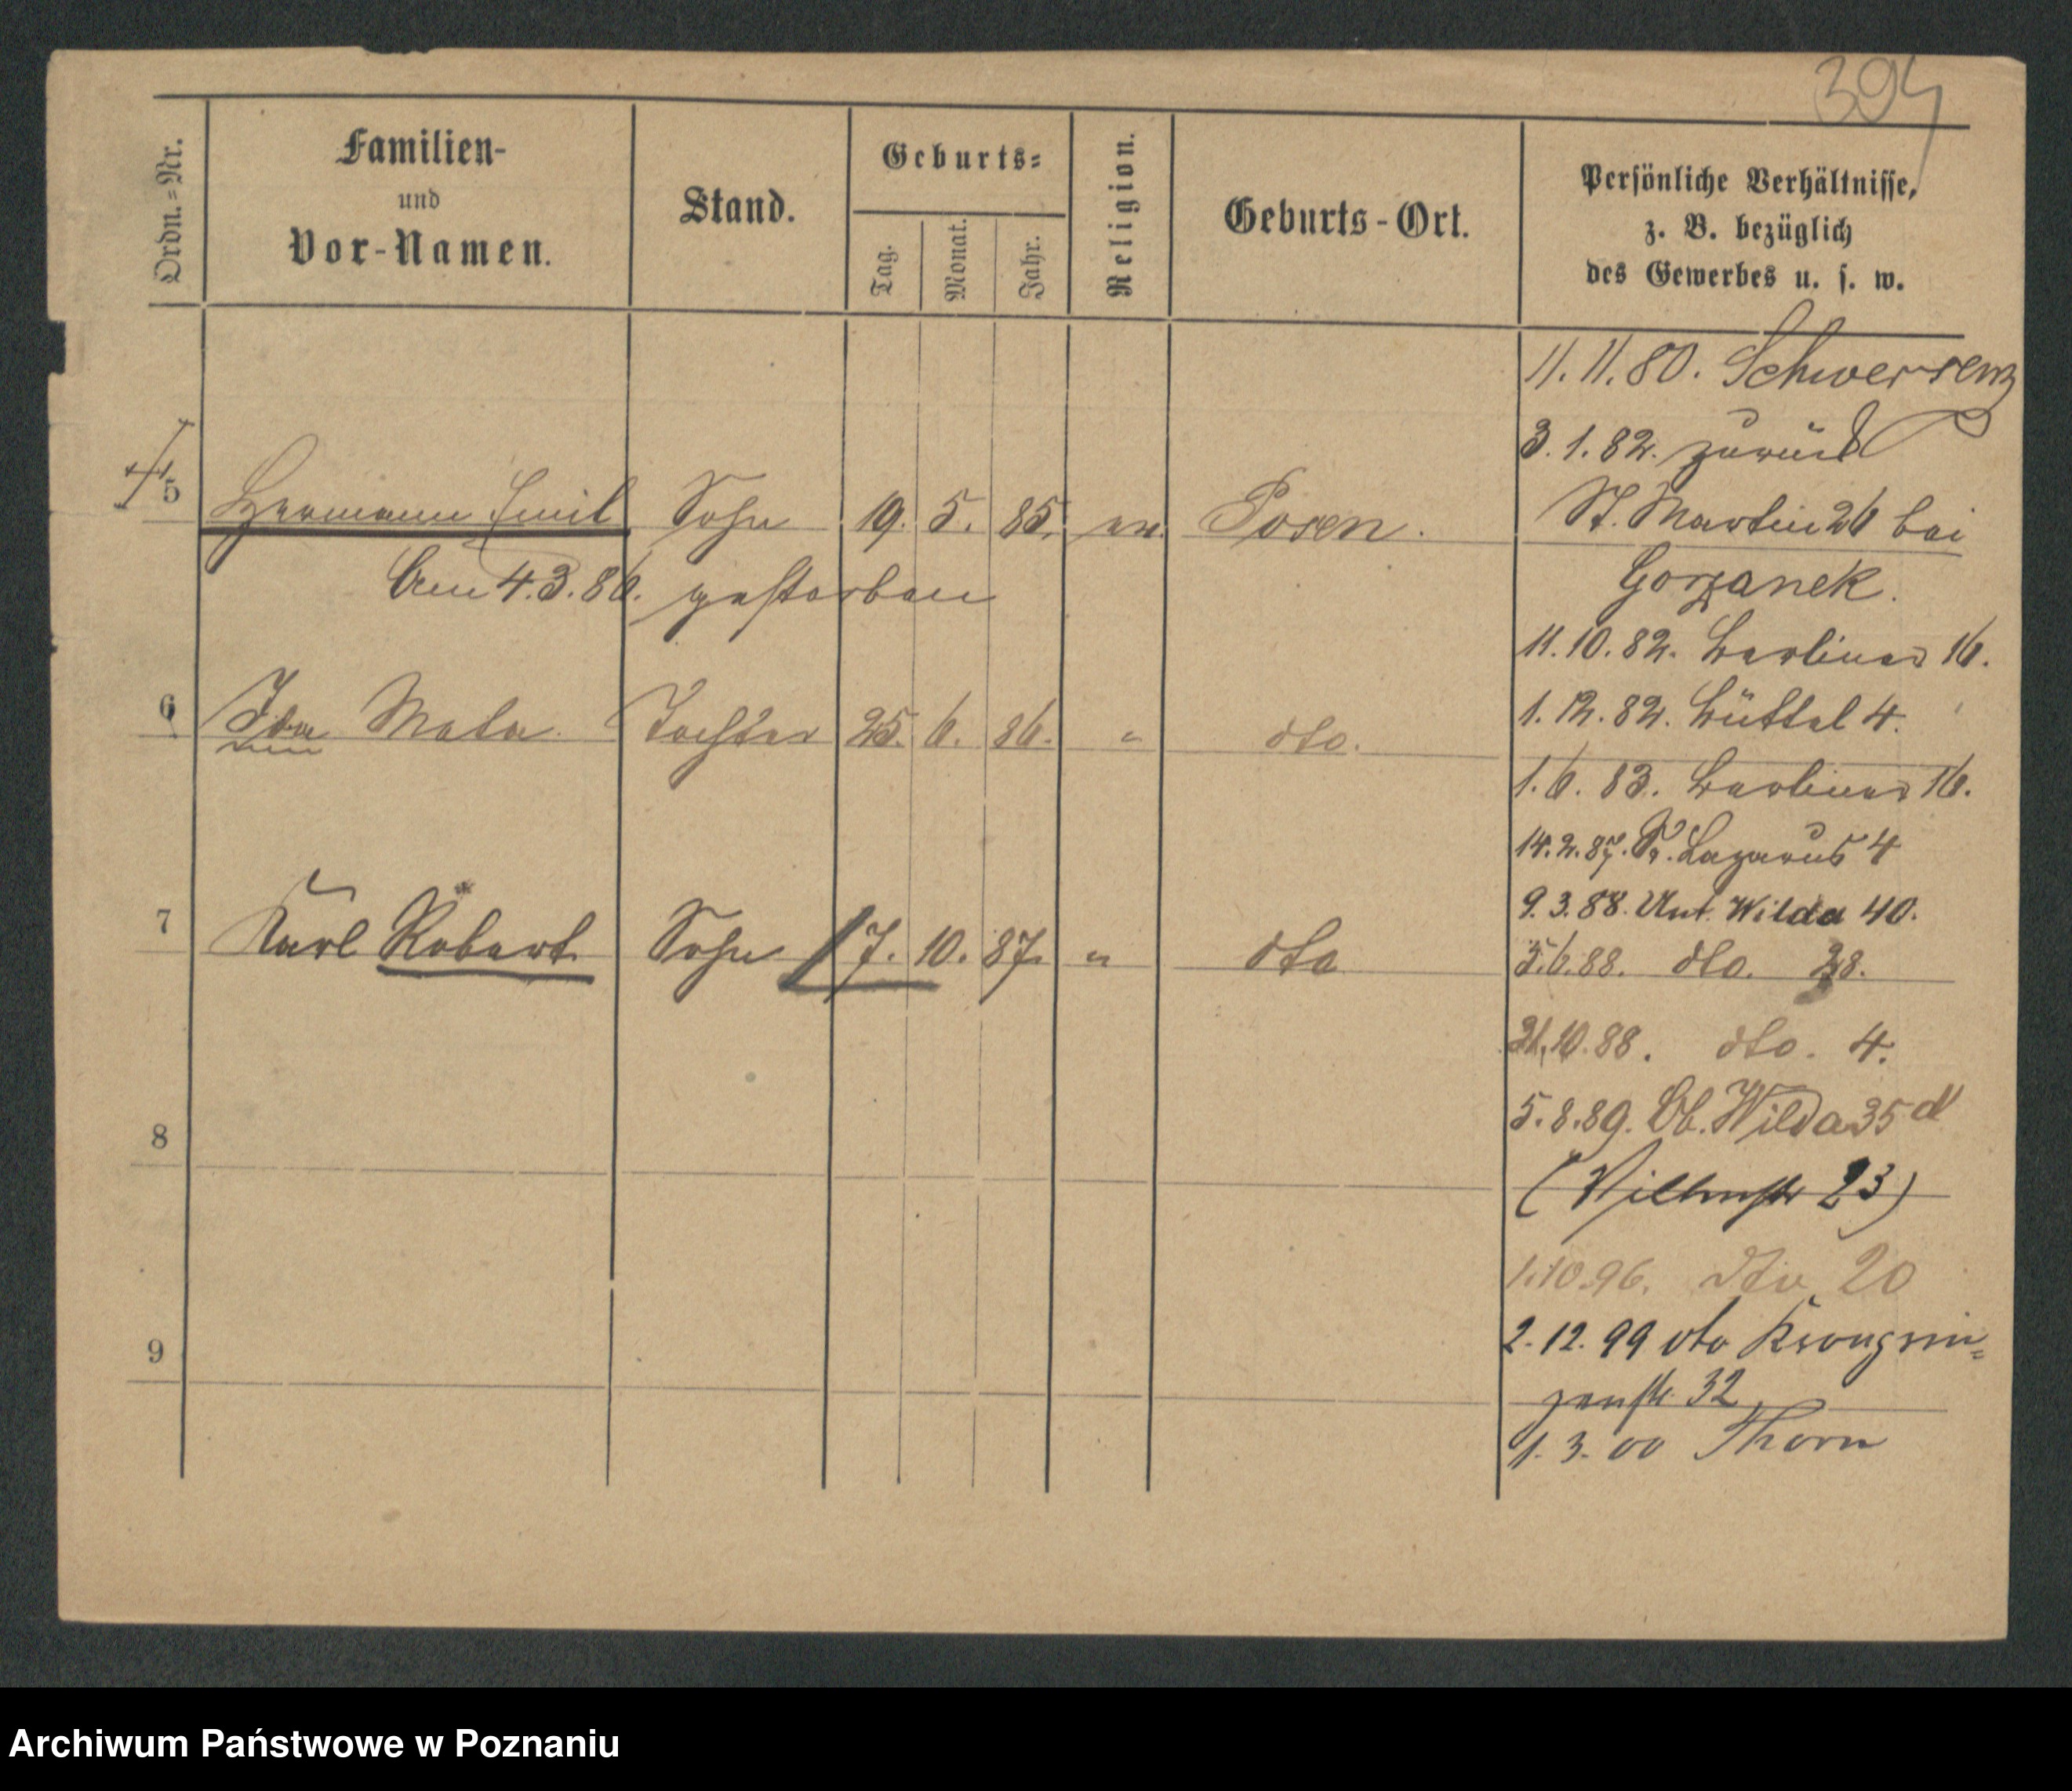 394
Ordn.-Nr.
Familien-
und
Vor-Namen.
Stand.
Geburts-
Tag.
Monat.
Jahr.
Religion.
Geburts-Ort.
Persönliche Verhältnisse,
z. B. bezüglich
des Gewerbes u. s. w.
11. 11. 80. Schwersenz
3. 1. 82. zurück
5 Hermann Emil Sohn 19. 5. 85. ev. Posen. St. Martin 26 bei
Am 4. 3. 86. gestorben Gorzanek.
11. 10. 82. Berliner 16.
6 Ida Meta Tochter 25. 6. 86. " dto. 1. 12. 82. Büttel 4.
1. 6. 83. Berliner 16.
14. 2. 87. St. Lazarus 4
9. 3. 88. Unt. Wilda 40.
7 Karl Robert Sohn 17. 10. 87. " dto 5. 6. 88. dto. 28.
21. 10. 88. dto. 4.
5. 8. 89. Ob. Wilda 35 d
8
( 23)
1. 10. 96. dto 20
2. 12. 99 dto Kronprin=
9
zenstr. 32
1. 3. 00 Thorn
Archiwum Państwowe w Poznaniu